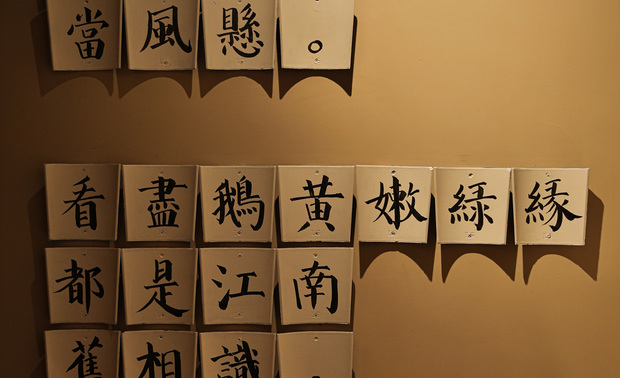 當風懸。
看盡鵝黃嫩綠緣
都是江南
舊相識。